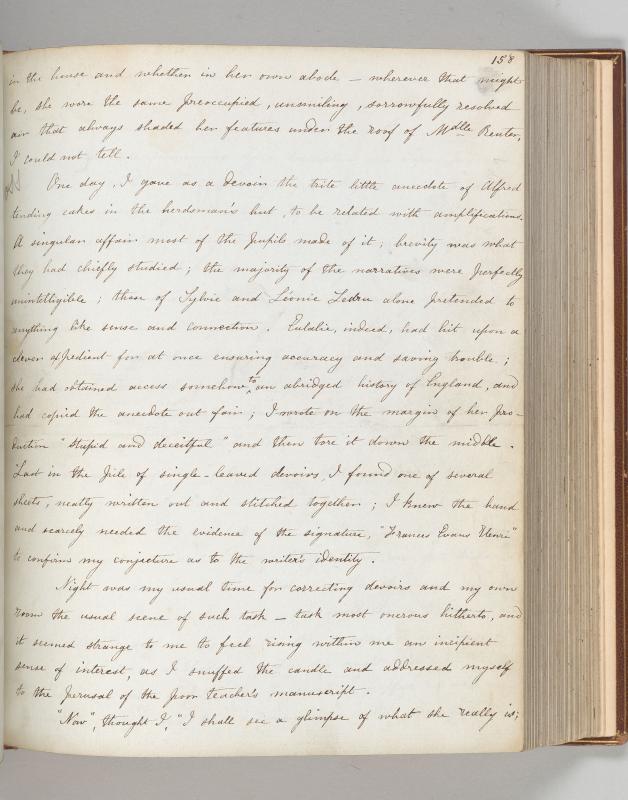 158
in the house and whether in her own abode – wherever that might
be, she wore the same preoccupied, unsmiling, sorrowfully resolved
air that always shaded her features under the roof of Mdlle Reuter,
I could not tell.
One day, I gave as a devoir the trite little anecdote of Alfred
tending cakes in the herdsman's hut, to be related with amplifications.
A singular affair most of the pupils made of it; brevity was what
they had chiefly studied; the majority of the narratives were perfectly
unintelligible; those of Sylvie and Léonie Ledru alone pretended to
anything like sense and connection. Eulalie, indeed, had hit upon a
clever expedient for at once ensuring accuracy and saving trouble;
she had obtained access somehow to an abridged history of England, and
had copied the anecdote out fair; I wrote on the margin of her pro-
duction "Stupid and deceitful" and then tore it down the middle.
Last in the pile of single-leaved devoirs, I found one of several
sheets, neatly written out and stitched together; I knew the hand
and scarcely needed the evidence of the signature, "Frances Evans Henri"
to confirm my conjecture as to the writer's identity.
Night was my usual time for correcting devoirs and my own
room the usual scene of such task – task most onerous hitherto, and
it seemed strange to me to feel rising within me an incipient
sense of interest, as I snuffed the candle and addressed myself
to the perusal of the poor teacher's manuscript.
"Now", thought I, "I shall see a glimpse of what she really is;